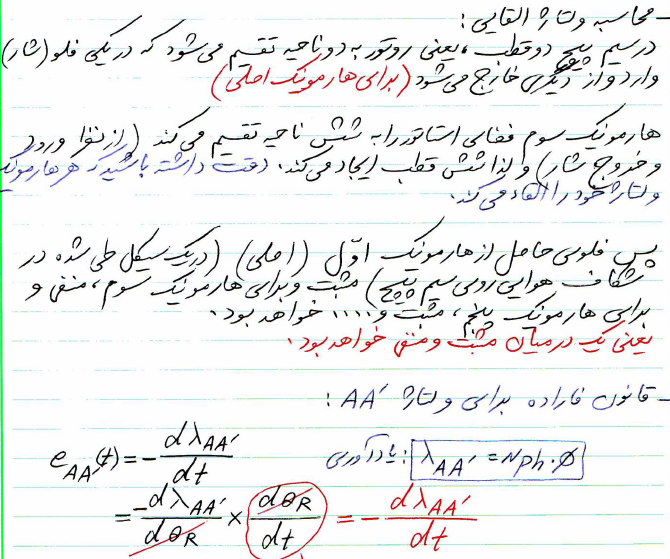 - محاسبه ولتاژ القایی :
درسیم پیچ دوقطب ، یعنی روتور به دو ناحیه تقسیم می‌شود که در یکی فلو (شار)
وارد و از دیگری خارج می‌شود (برای هارمونیک اصلی)
هارمونیک سوم فضای استاتور را به شش ناحیه تقسیم می‌کند (از نظر ورود
و خروج شار) و لذا شش قطب ایجاد می‌کند. دقت داشته باشید که هر هارمونیک
ولتاژ خود را القاء می‌کند.
پس فلوی حاصل از هارمونیک اوّل (اصلی) (در یک سیکل طی شده در
شکاف هوایی روی سیم پیچ) مثبت و برای هارمونیک سوم ، منفی و
برای هارمونیک پنجم ، مثبت و .... خواهد بود.
یعنی یک درمیان مثبت و منفی خواهد بود.
- قانون فاراده برای ولتاژ AA' :
e_AA'(t) = - dλ_AA' / dt
یادآوری : λ_AA' = Nph·φ
= -dλ_AA' / dθ_R × dθ_R / dt = - dλ_AA' / dt